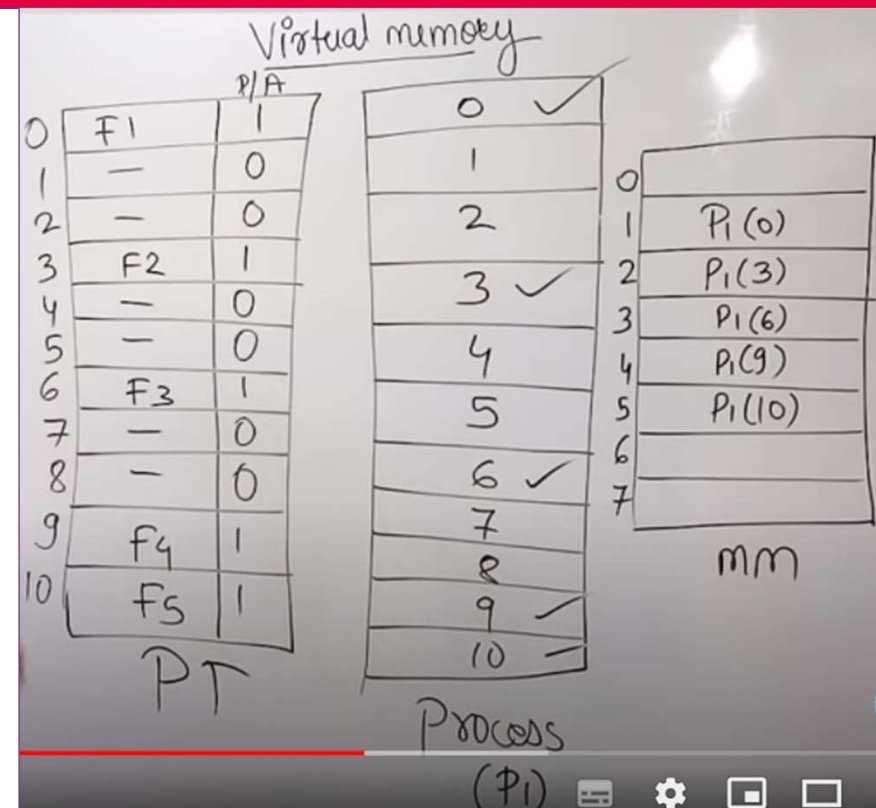 Virtual memory
P/A
0 F1 1
1 — 0
2 — 0
3 F2 1
4 — 0
5 — 0
6 F3 1
7 — 0
8 — 0
9 F4 1
10 F5 1
PT
0 ✓
1
2
3 ✓
4
5
6 ✓
7
8
9 ✓
10 –
Process
(P1)
0
1 P1(0)
2 P1(3)
3 P1(6)
4 P1(9)
5 P1(10)
6
7
mm